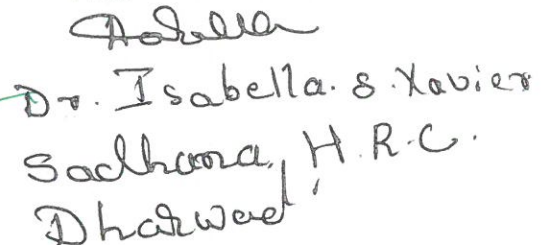 Dr. Isabella. S. Xavier
Sadhana, H.R.C.
Dharwad